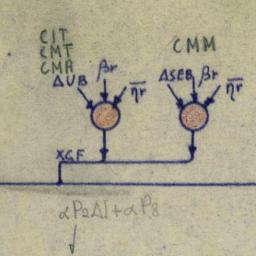 CIT
CMT
CMA
ΔUB βr η̅r
CMM
ΔSEB βr η̅r
XGF
αP₂ΔI+αP₈